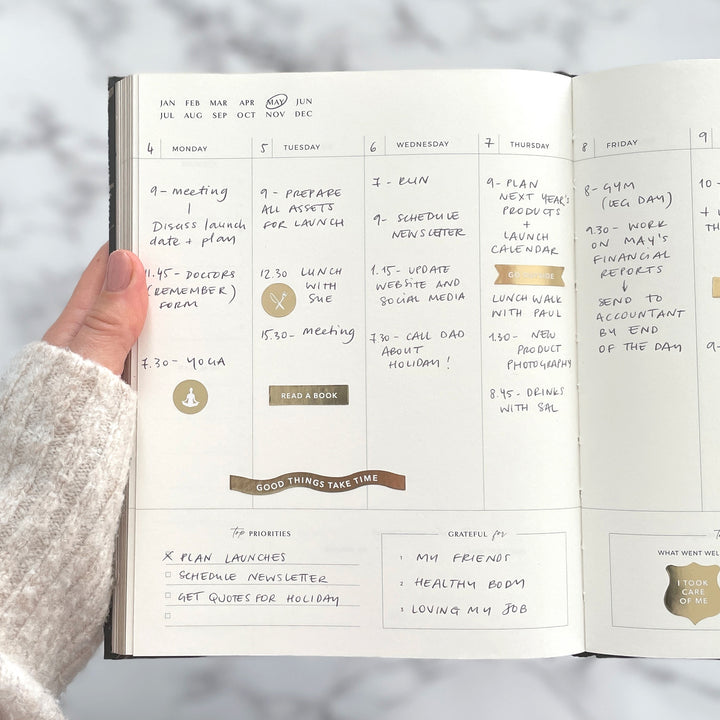 JAN FEB MAR APR MAY JUN
JUL AUG SEP OCT NOV DEC
4 MONDAY
9 - meeting
Disuss launch
date + plan
11.45 - DOCTORS
(REMEMBER)
FORM
7.30 - YOGA
5 TUESDAY
9 - PREPARE
ALL ASSETS
FOR LAUNCH
12.30 LUNCH
WITH
SUE
15.30 - meeting
READ A BOOK
6 WEDNESDAY
7 - RUN
9 - SCHEDULE
NEWSLETTER
1.15 - UPDATE
WEBSITE AND
SOCIAL MEDIA
7.30 - CALL DAD
ABOUT
HOLIDAY !
7 THURSDAY
9 - PLAN
NEXT YEAR'S
PRODUCTS
+
LAUNCH
CALENDAR
GO
LUNCH WALK
WITH PAUL
1.30 - NEW
PRODUCT
PHOTOGRAPHY
8.45 - DRINKS
WITH SAL
8 FRIDAY
8 - GYM
(LEG DAY)
9.30 - WORK
ON MAY'S
FINANCIAL
REPORTS
↓
SEND TO
ACCOUNTANT
BY END
OF THE DAY
9
10 -
+
TH
9 -
GOOD THINGS TAKE TIME
Top PRIORITIES
X PLAN LAUNCHES
SCHEDULE NEWSLETTER
GET QUOTES FOR HOLIDAY
GRATEFUL for
1 MY FRIENDS
2 HEALTHY BODY
3 LOVING MY JOB
WHAT WENT WEL
I TOOK
CARE
OF ME